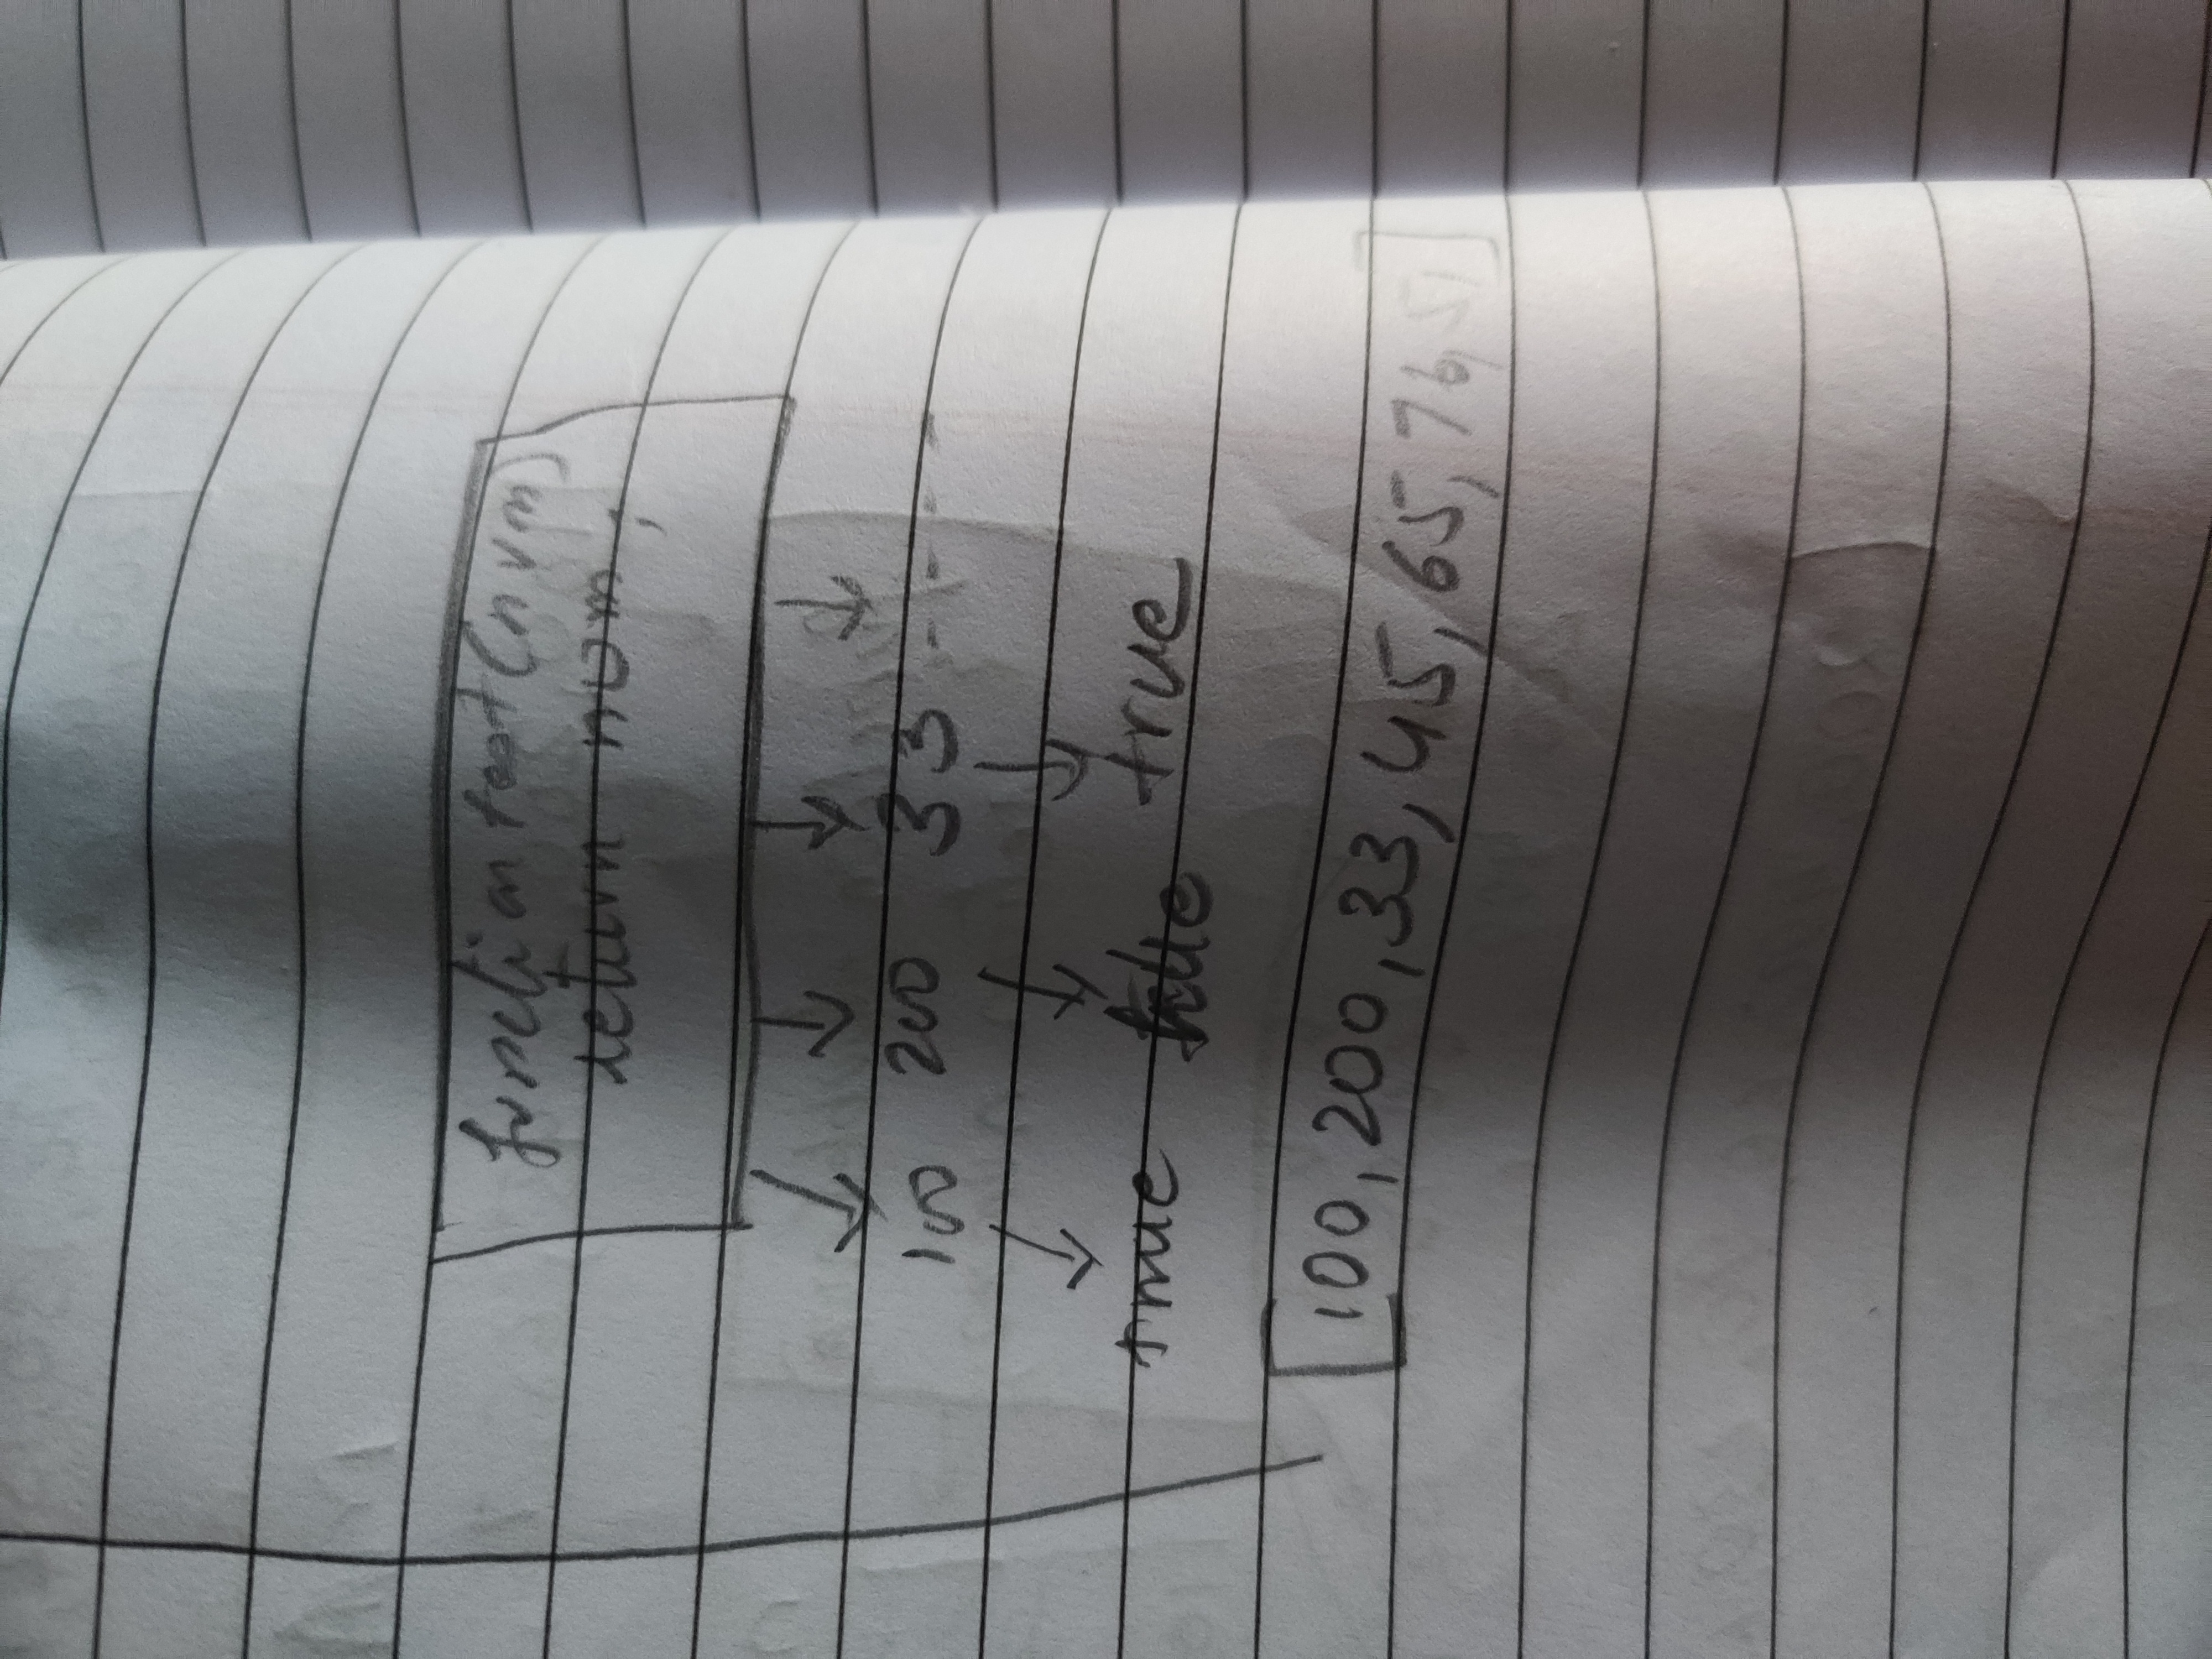 function test(num)
return num;
100 200 33 - - - - -
true true true
[100, 200, 33, 45, 65, 76, 5,]